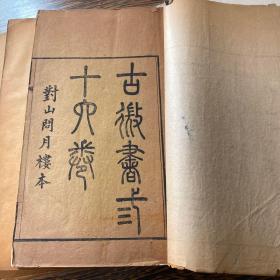 古微書弎
十六卷
對山問月樓本